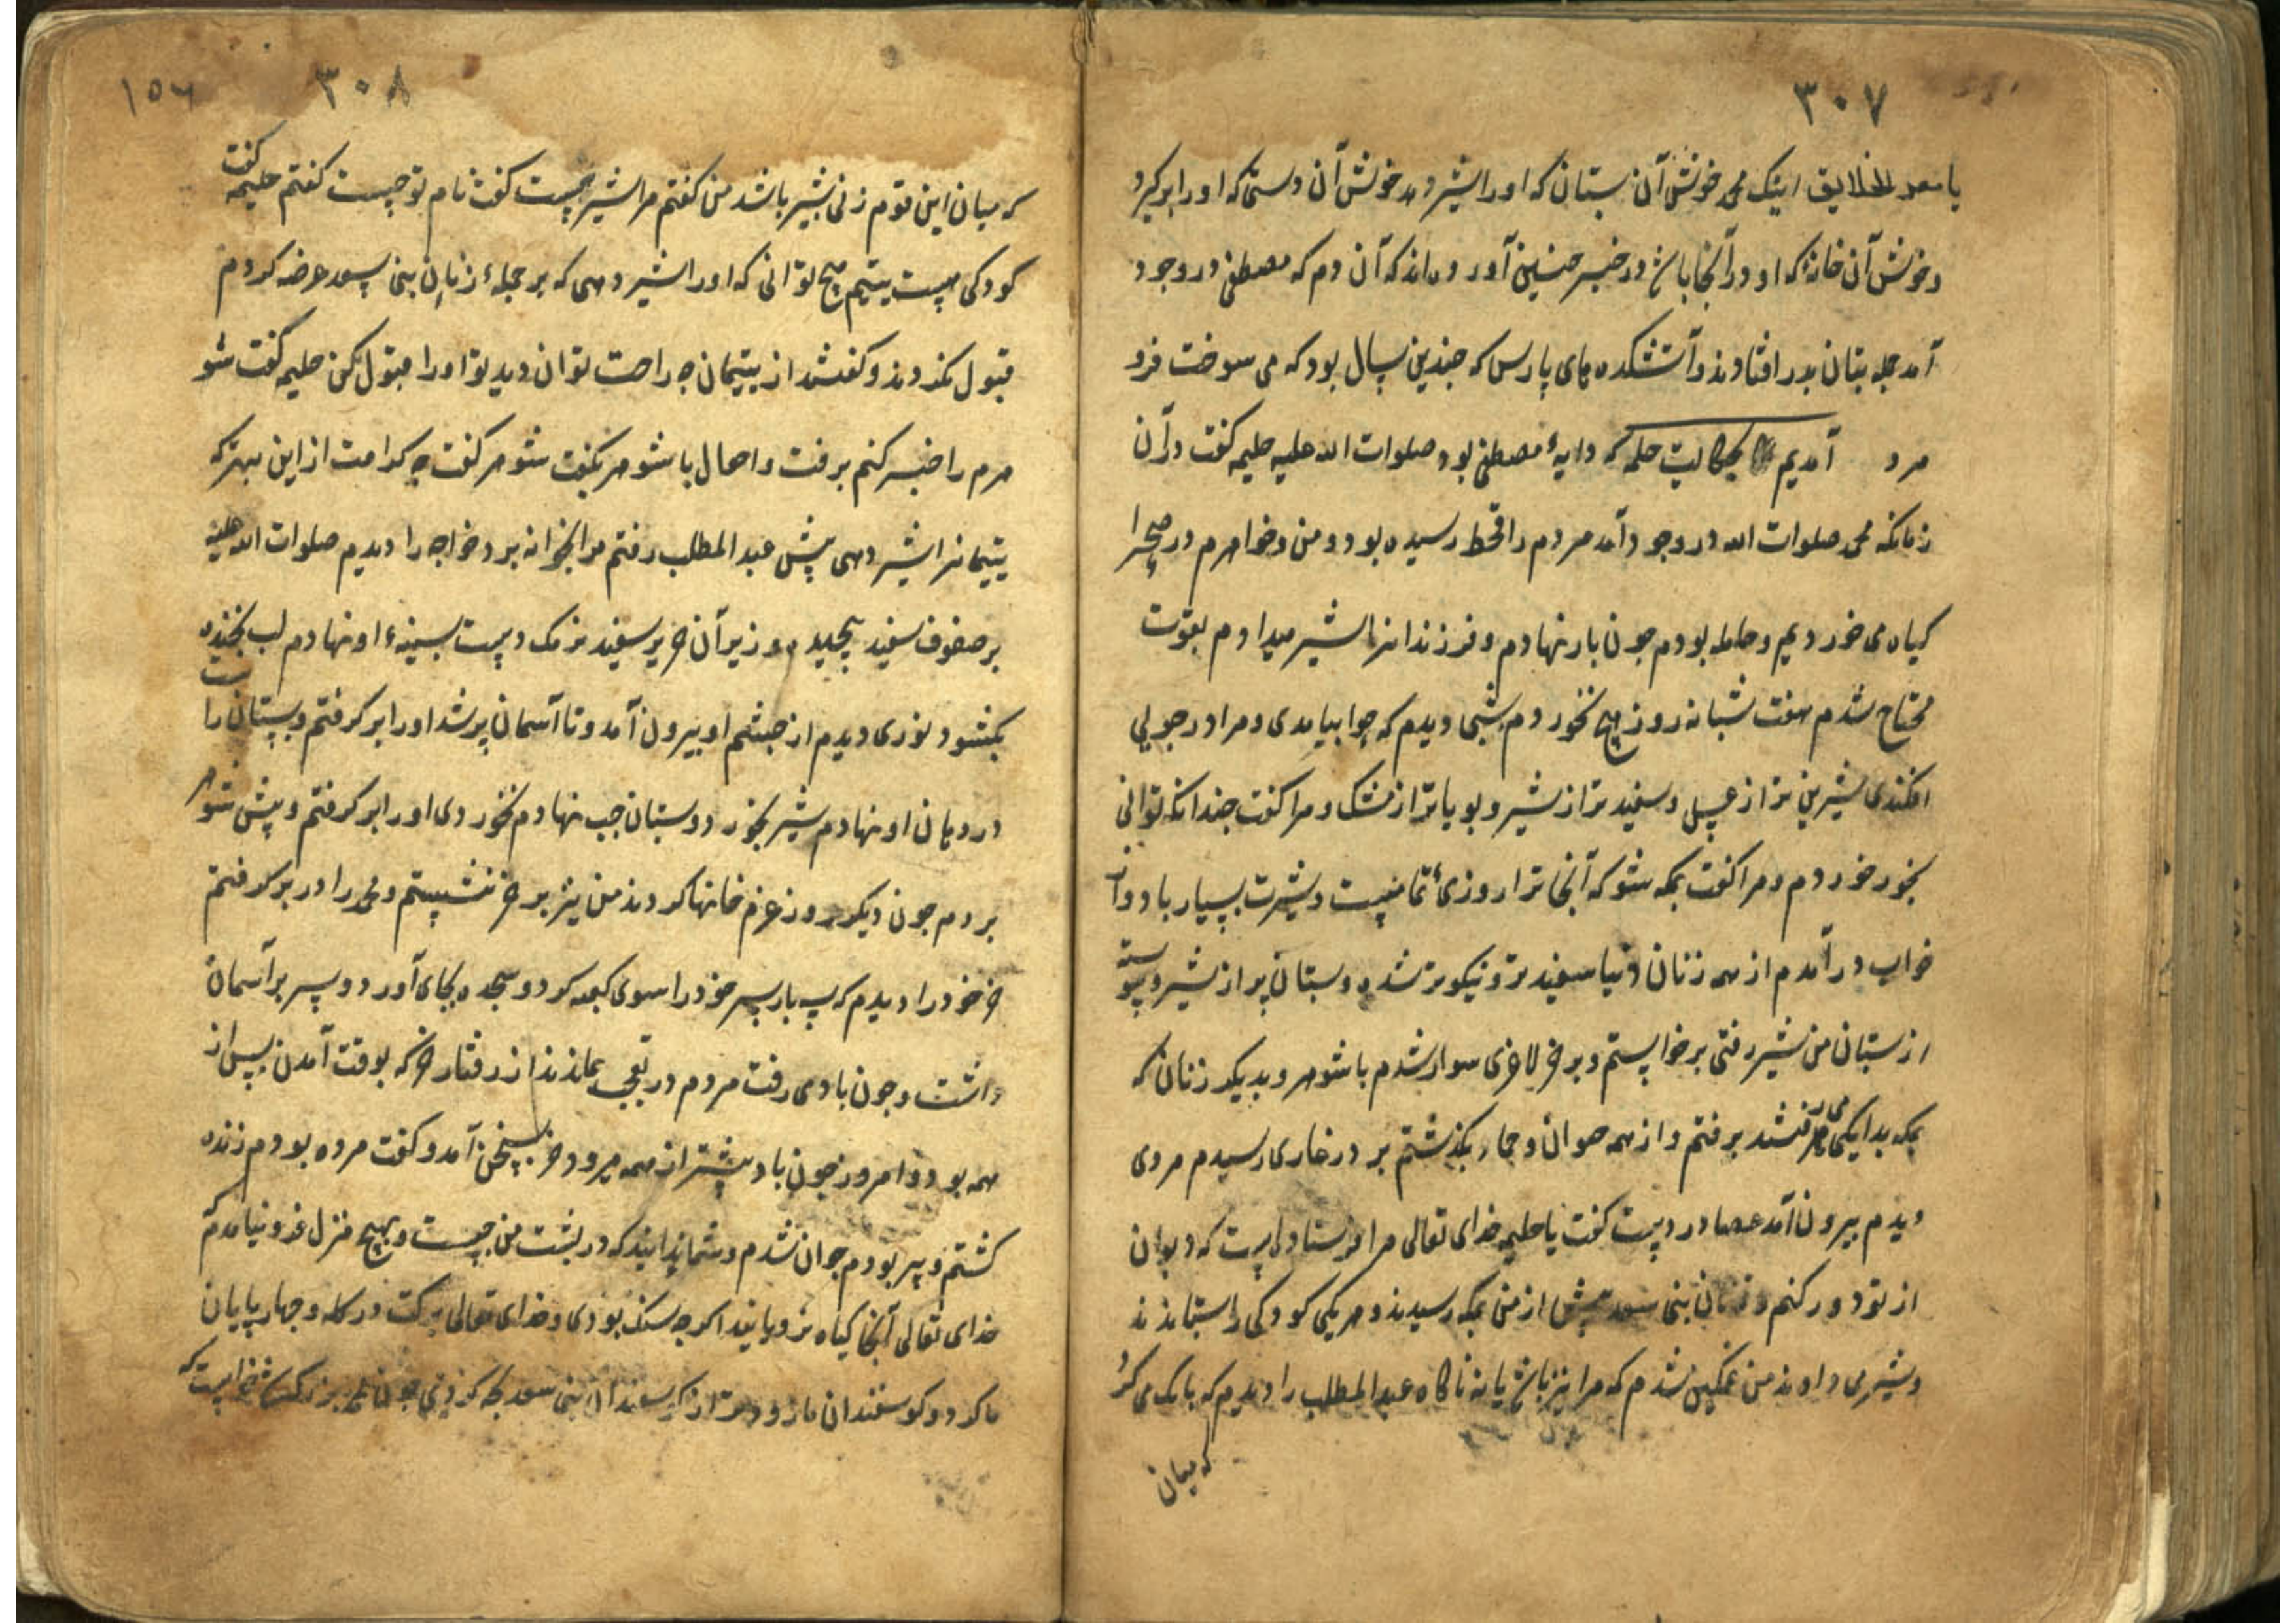 ۳۰۷
یا معشر الخلایق اینک محمد خوش آن بستان که او را شیر دهد خوش آن دستی که او را برگیرد
و خوش آن خانه که او در آنجا باشد و در خبر چنین آورده‌اند که آن دم که مصطفی در وجود
آمد جمله بتان بدر افتادند و آتشکده‌های پارس که چندین سال بود که می سوخت فرو
مرد آمدیم بحکایت حلیمه که دایهٔ مصطفی بود صلوات الله علیه حلیمه گفت در آن
زمانکه محمد صلوات الله در وجود آمد مردم را قحط رسیده بود و من و خواهرم در صحرا
کیاه می خوردیم و حامله بودم جون بار نهادم و فرزند را شیر میدادم بقوت
محتاج شدم هفت شبانه روز هیچ نخوردم شبی دیدم که بیامدی و مرا در جویی
افکندی شیرین تر از عسل و سفید تر از شیر و بویاتر از مشک و مرا کفت جندانکه توانی
بخور خوردم و مرا کفت بمکه شو که آنجا ترا روزی تمامیست و شیرت بسیار باد و از
خواب درآمدم از همه زنان دنیا سفید تر و نیکوتر شده و بستان پر از شیر و پیوسته
از بستان من شیر رفتی برخاستم و بر خر لاغری سوار شدم با شوهر و بدیکر زنان که
بمکه بدایکی می رفتند برفتم و از همه بگذشتم بر در غاری رسیدم مردی
دیدم بیرون آمد عصا در دست کفت یا حلیمه خدای تعالی مرا فرستاده است که دیوان
از تو دور کنم و زنان بنی سعد پیش از من بمکه رسیدند و هر یکی کودکی را ستاندند
و شیر می دادند من غمکین شدم که مرا نیز باشد یا نه ناکاه عبدالمطلب را دیدم که بانک می کرد
که میان
۳۰۸
۱۵۶
که میان این قوم زنی بشیر باشد من کفتم مرا شیر هست کفت نام تو جیست کفتم حلیمه کفت
کودکی هست یتیم هیچ توانی که او را شیر دهی که بر جملهٔ زنان بنی سعد عرضه کردم
قبول نکردند و کفتند از یتیمان چه راحت توان دید تو او را قبول کن حلیمه کفت شو
هرم را خبر کنم برفت و احوال با شوهر بکفت شوهر کفت چه کرامت از این بهتر که
یتیمانرا شیر دهی پیش عبدالمطلب رفتم مرا بخانه برد و خواجه را دیدم صلوات الله علیه
بر صوف سفید پیچیده و زیر آن حریر سفید نزمک دست بسینهٔ او نهادم لب بخنده
بکشود نوری دیدم از جشم او بیرون آمد و تا آسمان پر شد او را بر کرفتم و بستان راست
در دهان او نهادم شیر بخورد و بستان جب نهادم نخوردی او را بر کرفتم و پیش شوهر
بردم جون دیکر روز عزم خانها کردند من نیز بر خر نشستم و محمد را در بر کرفتم
خر خود را دیدم که سه بار سر خود را سوی کعبه کرد و سجده بجای آورد و سر بر آسمان
داشت و جون باد می رفت مردم در تعجب بماندند از رفتار خر که بوقت آمدن بس از
همه بود و امروز جون باد پیشتر از همه میرود خر بسخن آمد و کفت مرده بودم زنده
کشتم و پیر بودم جوان شدم و شما ندانید که در پشت من جیست و بهیچ منزل فرو نیامدم که
خدای تعالی آنجا کیاه نرویانید اکر جه سنک بودی و خدای تعالی برکت در کله و جهارپایان
ما کرد و کوسفندان ما زودتر از کوسفندان بنی سعد بچه کردندی جون محمد بزرک